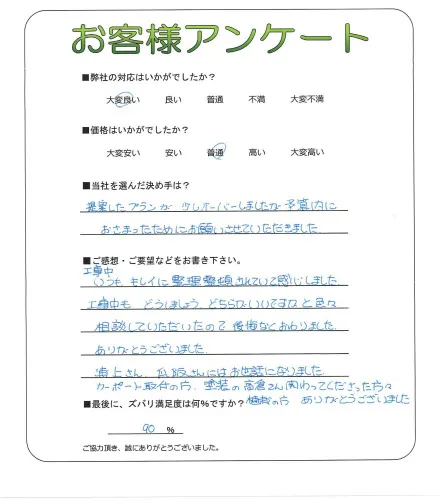 お客様アンケート
■弊社の対応はいかがでしたか？
大変良い 良い 普通 不満 大変不満
■価格はいかがでしたか？
大変安い 安い 普通 高い 大変高い
■当社を選んだ決め手は？
提案したプランが 少しオーバーしましたが 予算内に
おさまったためにお願いさせていただきました
■ご感想・ご要望などをお書き下さい。
工事中
いつも キレイに 整理整頓されていて感じしました
工事中も どうしましょう どちらがいいですかなと色々
相談していただいたので 後悔なくおわりました
ありがとうございました
浦上さん 瓜阪さんにはお世話になりました
カーポート取付の方 塗装の高倉さん関わってくださった方々
■最後に、ズバリ満足度は何％ですか？ 植栽の方 ありがとうございました
90 ％
ご協力頂き、誠にありがとうございました。